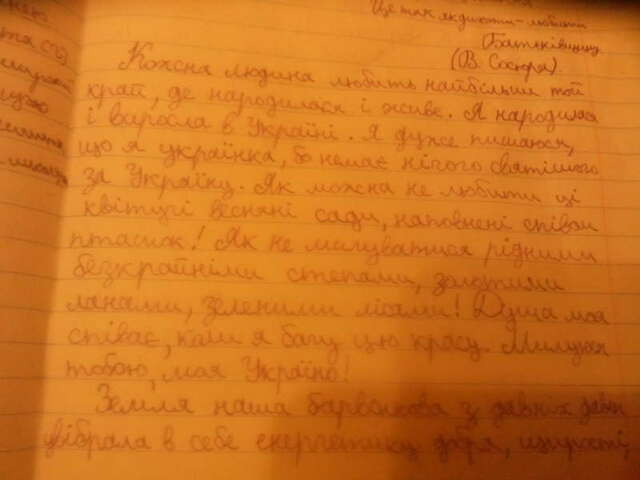 Це так як дихати - любити
Батьківщину
(В. Сосюра).
Кожна людина любить найбільше той
край, де народилася і живе. Я народилась
і виросла в Україні. Я дуже пишаюся,
що я українка, бо немає нічого святішого
за Україну. Як можна не любити ці
квітучі весняні сади, наповнені співом
пташок! Як не милуватися рідними
безкрайніми степами, золотими
ланами, зеленими лісами! Душа моя
співає, коли я бачу цю красу. Милуюсь
тобою, моя Україно!
Земля наша барвінкова з давніх давен
увібрала в себе енергетику добра, щирості,